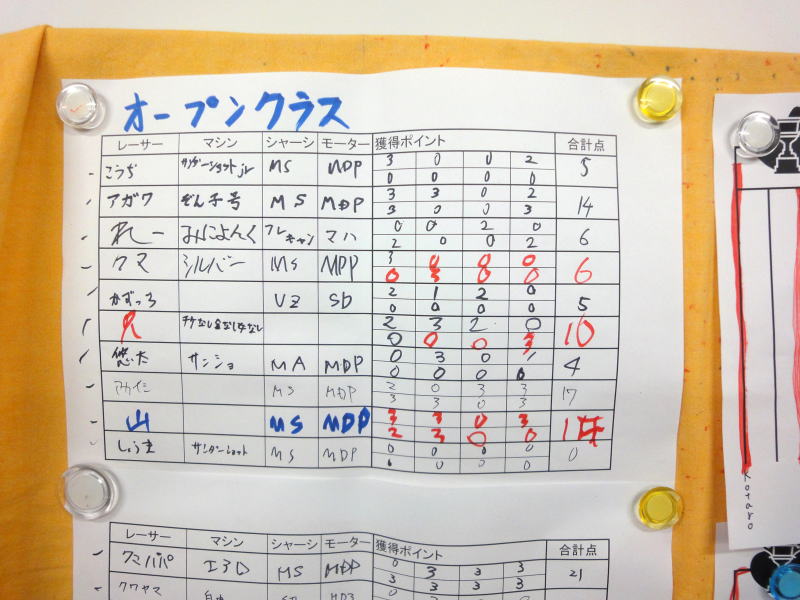 オープンクラス
レーサー マシン シャーシ モーター 獲得ポイント 合計点
こうぢ サンダーショットjr MS MDP 3 0 0 2 5
0 0 0 0
アガワ ぞん子号 MS MDP 3 3 0 2 14
3 0 0 3
れー みによんく フレキャン マハ 0 0 2 0 6
2 0 0 2
クマ シルバー MS MDP 3 0 0 0 6
0 3 0 0
かずっち VZ SD 2 1 2 0 5
0 0 0 0
2 3 2 0 10
0 0 0 3
悠太 サンショ MA MDP 0 3 0 1 4
0 0 0 0
MS MDP 2 0 3 3 17
3 3 0 3
山 MS MDP 3 3 0 3
2 3 0 0
しょうま サンダーショット MS MDP 0 0 0 0 0
0 0 0 0
レーサー マシン シャーシ モーター 獲得ポイント 合計点
クマパパ I3D MS MDP 0 3 3 3 21
3 3 3 3
クワヤマ
Kotaro